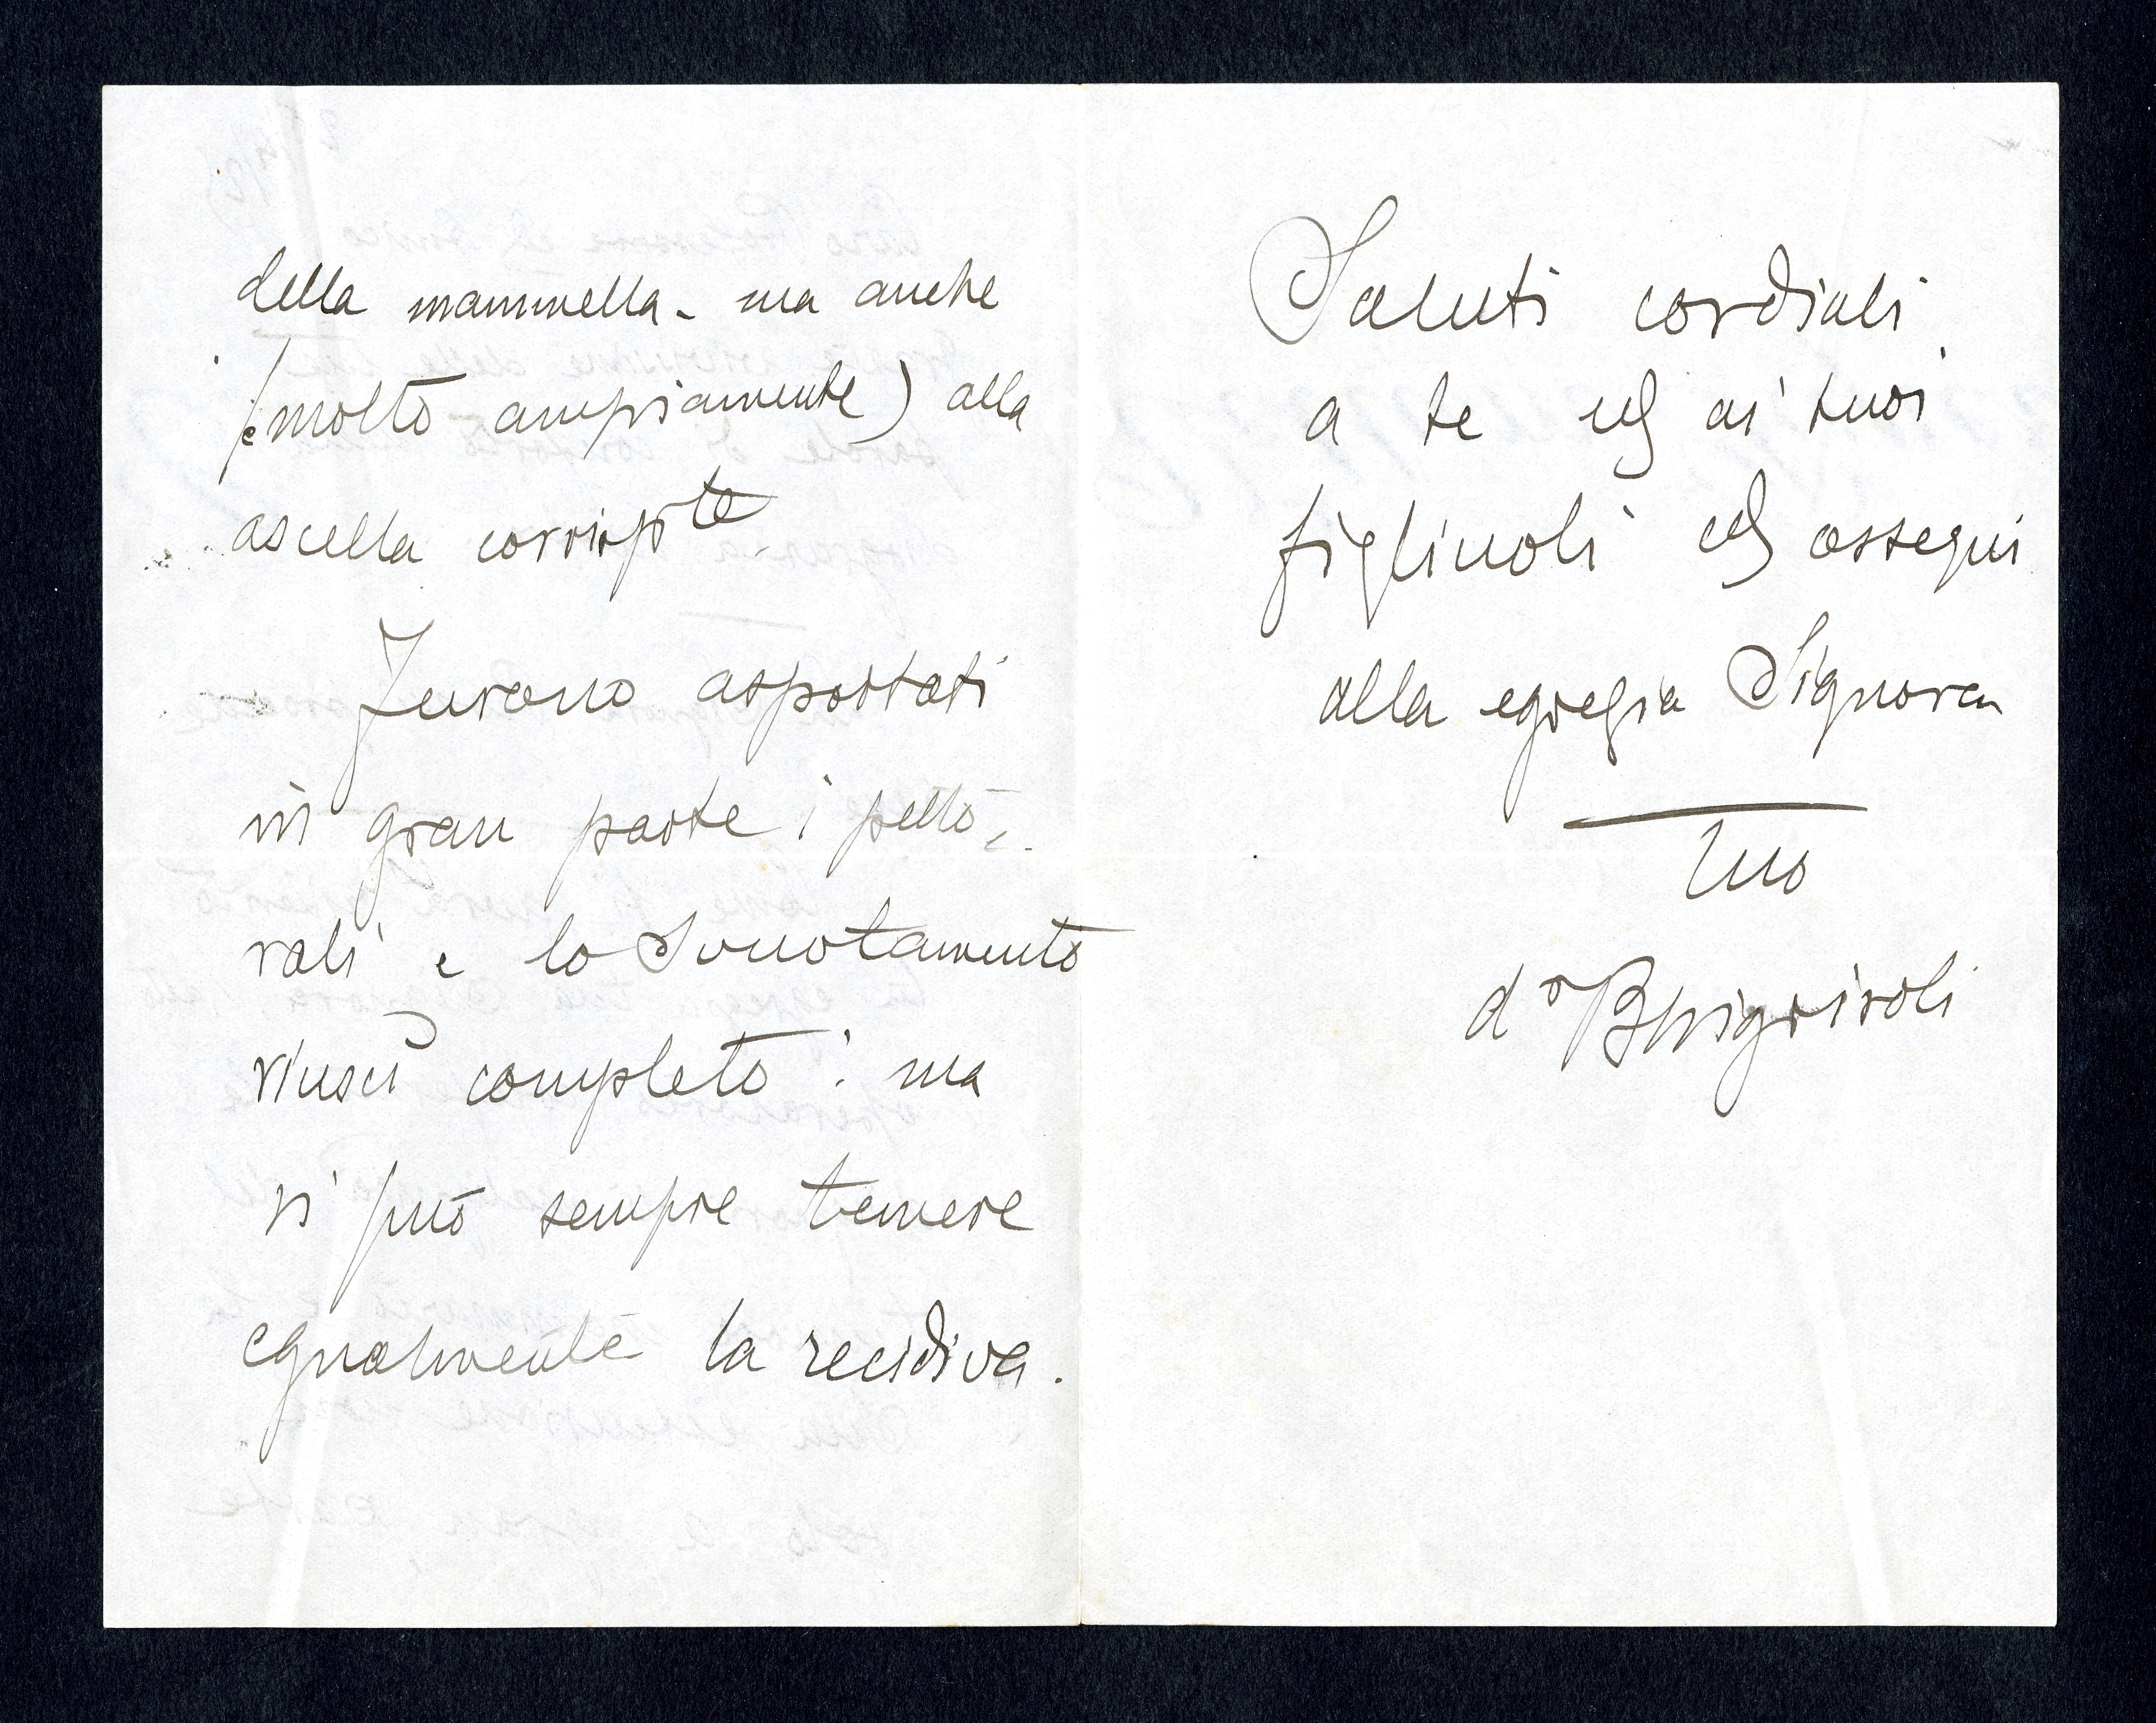 della mammella - ma anche
(e molto ampiamente) alla
ascella corrispte
Furono asportati
in gran parte i petto-
rali e lo svuotamento
riuscì completo: ma
si può sempre temere
egualmente la recidiva.
Saluti cordiali
a te ed ai tuoi
figliuoli ed ossequi
alla egregia Signora
tuo
dr